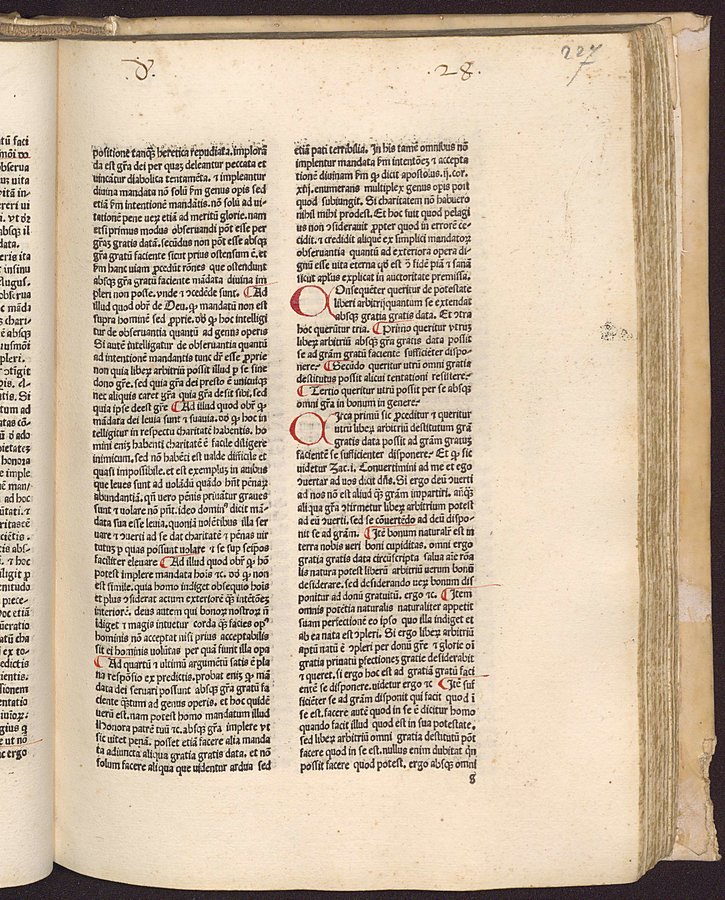 d.
.28.
227
positionē tanq̃ heretica repudiata. implorā
da est gr̃a dei per quaȝ deleantur peccata et
uincātur diabolica tentamēta. ⁊ impleantur
diuina mandata nō solū ẜm genus opis sed
etiā ẜm intentionē mandātis. nō solū ad ui-
tationē pene ueȝ etiā ad meritū glorie. nam
etsi primus modus obseruandi pōt esse per
gr̃aȝ gratis datā. secūdus non pōt esse absqȝ
gr̃a gratū faciente sicut prius ostensum ē. et
ẜm hanc uiam ꝓcedūt rōnes que ostendunt
absqȝ gr̃a gratū faciente mādata diuina im
pleri non posse. unde ⁊ ꝯcedēde sunt. ¶ Ad
illud quod obr̄ de Deu. ꝙ mandatū non est
supra hominē sed ꝓprie. ꝺꝺ ꝙ hoc intelligi
tur de obseruantia quantū ad genus operis
Si autē intelligatur de obseruantia quantū
ad intentionē mandantis tunc dr̄ esse ꝓprie
non quia liberȝ arbitriū possit illud ꝑ se sine
dono gr̄e. sed quia gr̃a dei presto ē unicuiqȝ
nec aliquis caret gr̃a quia gr̃a desit sibi. sed
quia ipse deest gr̄e ¶ Ad illud quod obr̄ ꝙ
mādata dei leuia sunt ⁊ suauia. ꝺꝺ ꝙ hoc in
telligitur in respectu charitatē habentis. ho
mini eniȝ habenti charitatē ē facile diligere
inimicum. sed nō habēti est ualde difficile et
quasi impossibile. et est exempluȝ in auibus
que leues sunt ad uolādū quādo hn̄t pēnaȝ
abundantiā. qn̄ uero pēnis priuatur graues
sunt ⁊ uolare nō pn̄t. ideo domin⁹ dicit mā-
data sua esse leuia. quoniā uolētibus illa ser
uare ⁊ ꝯuerti ad se dat charitatē ⁊ pēnas uir
tutuȝ ꝑ quas possunt uolare ⁊ se sup seipos
faciliter eleuare ¶ Ad illud quod obr̄ ꝙ hō
potest implere mandata hois ⁊c. ꝺꝺ ꝙ non
est simile. quia homo indiget obsequio hois
et plus ꝯsiderat actum exteriorē qȝ intētōeȝ
interiorē. deus autem qui bonoȝ nostroȝ nō
īdiget ⁊ magis intuetur corda qȝ facies opꝰ
hominis nō acceptat nisi prius acceptabilis
sit ei hominis uolūtas per quā fiunt illa opa
¶ Ad quartū ⁊ ultimū argumētū satis ē pla
na respōsio ex predictis. probat eniȝ ꝙ mā
data dei seruari possunt absqȝ gr̃a gratū fa
ciente q̄stum ad genus operis. et hoc quidē
uerū est. nam potest homo mandatum illud
Honora patrē tuū ⁊c. absqȝ gr̃a implere ut
sic uitet penā. posset etiā facere alia manda
ta adiuncta aliqua gratia gratis data. et nō
solum facere aliqua que uidentur ardua sed
etiā pati terribilia. In his tamē omnibus nō
implentur mandata ẜm intentōeȝ ⁊ accepta
tionē diuinam ẜm ꝙ dicit apostolus. ij. cor.
xiij. enumerans multiplex genus opis post
quod subiungit. Si charitatem nō habuero
nihil mihi prodest. Et hoc fuit quod pelagi
us non ꝯsiderauit ꝓpter quod in errorē ce-
cidit. ⁊ credidit aliquē ex simplici mandatoȝ
obseruantia quantū ad exteriora opera di-
gnū esse uita eterna qꝺ est ꝯ fidē piā ⁊ sanā
sicut aplūs explicat in auctoritate premissa.
COnsequēter queritur de potestate
liberi arbitrij quantum se extendat
absqȝ gratia gratis data. Et ꝯtra
hoc querūtur tria. ¶ Primo queritur utruȝ
liberȝ arbitriū absqȝ gr̃a gratis data possit
se ad gr̃am gratū faciente sufficiēter dispo-
nere. ¶ Secūdo queritur utrū omni gratia
destitutus possit alicui tentationi resistere.
¶ Tertio queritur utrū possit per se absqȝ
omni gr̃a in bonum in genere.
CIrca primū sic ꝓceditur ⁊ queritur
utrū liberȝ arbitriū destitutum gr̃a
gratis data possit ad gr̃am gratuȝ
facientē se sufficienter disponere. Et ꝙ sic
uidetur Zac. i. Conuertimini ad me et ego
ꝯuertar ad uos dicit dn̄s. Si ergo deū ꝯuerti
ad nos nō est aliud qȝ gr̃am impartiri. anteqȝ
aliqua gr̃a ꝯfirmetur liberȝ arbitrium potest
ad eū ꝯuerti. sed se cōuertēdo ad deū dispo-
nit se ad gr̃am. ¶ Itē bonum naturale est in
terra nobis ueri boni cupiditas. omni ergo
gratia gratis data circūscripta salua aīe rōna
lis natura potest liberȝ arbitriū uerum bonū
desiderare. sed desiderando uerȝ bonum dis
ponitur ad donū gratuitū. ergo ⁊c. ¶ Item
omnis potētia naturalis naturaliter appetit
suam perfectionē eo ipso quo illa indiget et
ab ea nata est ꝯpleri. Si ergo liberȝ arbitriū
aptū natū ē ꝯpleri per donū gr̄e ⁊ glorie oī
gratia priuati pfectiones gratie desiderabit
⁊ queret. si ergo hoc est ad gratiā gratū faci
entē se disponere. uidetur ergo ⁊c ¶ Itē suf
ficiēter se ad gr̃am disponit qui facit quod ī
se est. facere autē quod in se ē dicitur homo
quando facit illud quod est in sua potestate.
sed liberȝ arbitriū omni gratia destitutū pōt
facere quod in se est. nullus enim dubitat qn̄
possit facere quod potest. ergo absqȝ omni
g